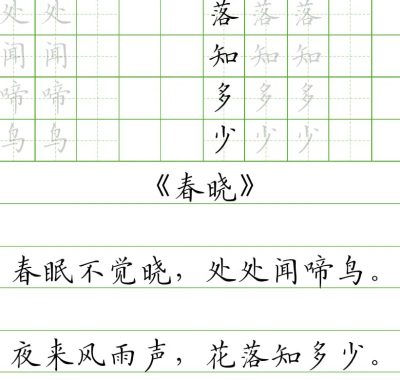 处处 落落落落
闻闻 知知知知
啼啼 多多多多
鸟鸟 少少少少
《春晓》
春眠不觉晓，处处闻啼鸟。
夜来风雨声，花落知多少。